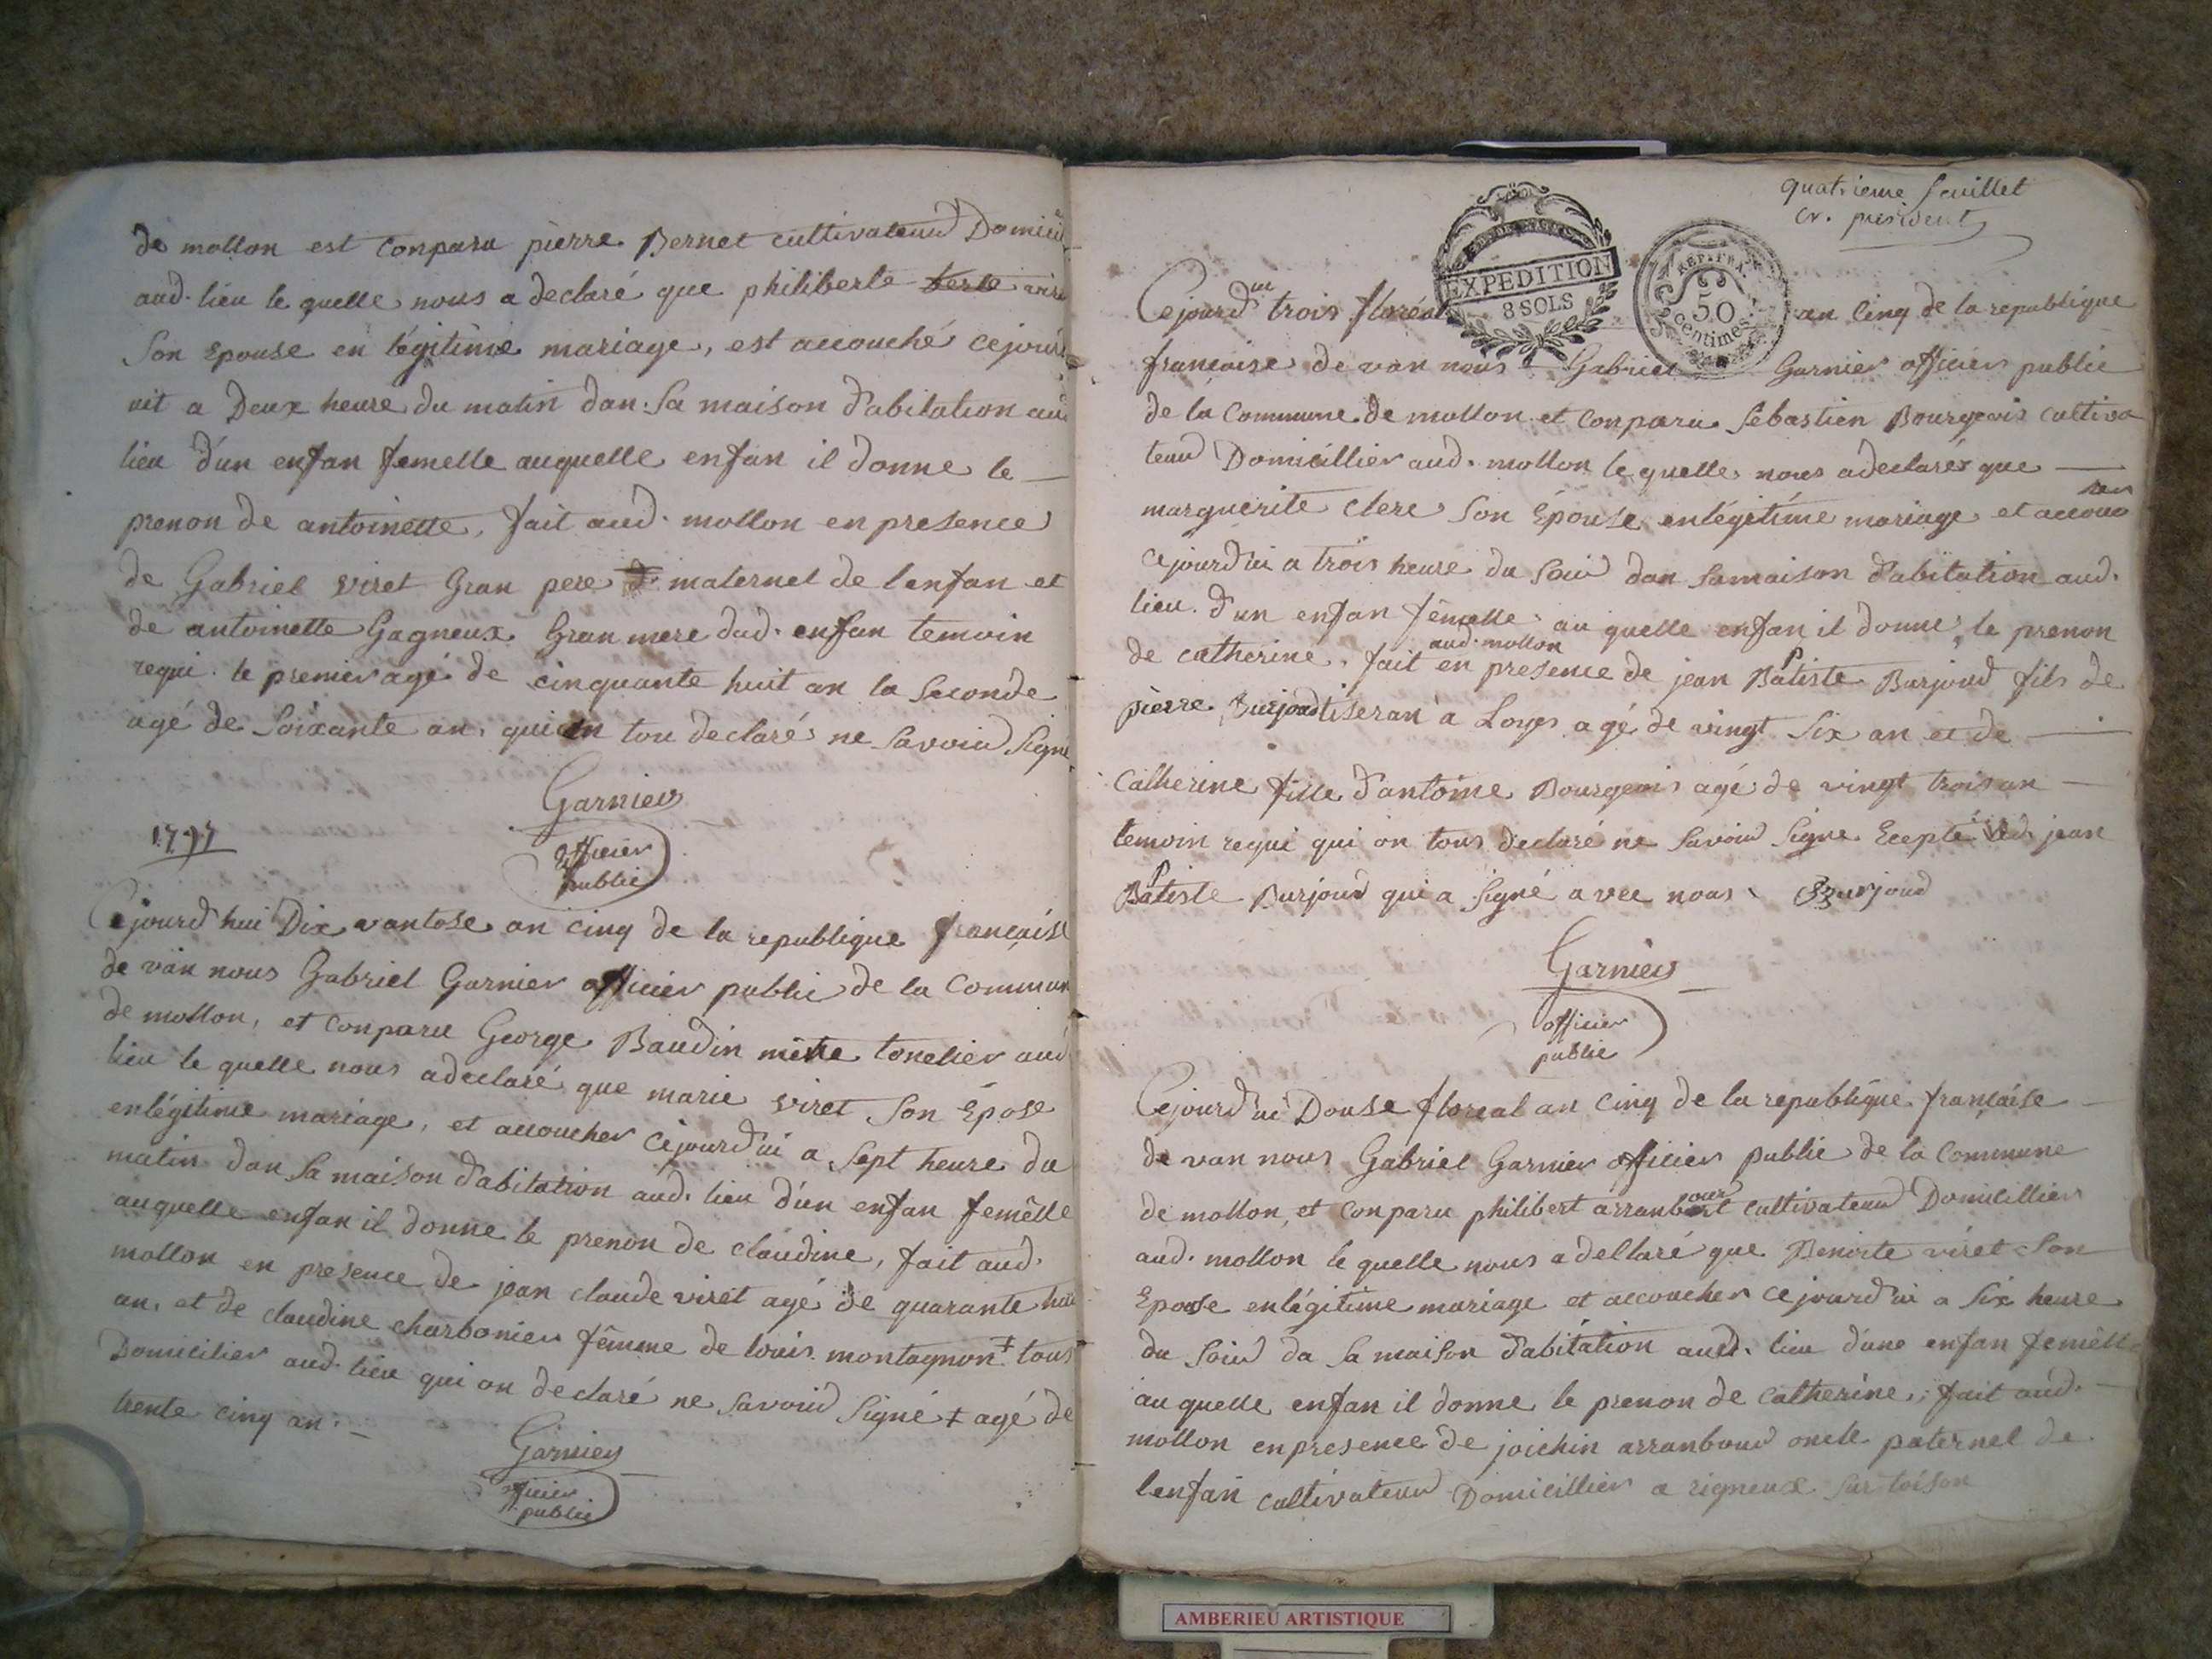 de mollon est Conparu pierre Bernet cultivateur Domicil
aud. lieu le quelle nous a declaré que philiberte viré
Son Epouse en légitime mariage, est accouché cejourd
uit a Deux heure du matin dan Sa maison d'abitation aud
lieu d'un enfan femelle auquelle enfan il donne le
prenon de antoinette, fait aud. mollon en presence
de Gabriel viret Gran pere maternel de lenfan et
de antoinette Gagneux Gran mere dud. enfan temoin
requi. le premier agé de cinquante huit an la Seconde
agé de Soixante an, qui on tou declaré ne Savoir Signe
Garnier
officier
public
1797
Cejourd'hui Dix vantose an cinq de la republique francaise
de van nous Gabriel Garnier officier public de la Commun
de mollon, et Conparu George Baudin mètre tonelier aud
lieu le quelle nous adeclaré que marie viret Son Epose
enlégitime mariage, et accoucher cejourd'ui a Sept heure du
matin dan Sa maison d'abitation aud. lieu d'un enfan femêlle
auquelle enfan il donne le prenon de claudine, fait aud.
mollon en presence de jean claude viret agé de quarante hui
an, et de claudine charbonier fêmme de louis montagnon ‡ tous
Domicilier aud. lieu qui on declaré ne Savoir Signé ‡ agé de
trente cinq an.
Garnier
officier
public
quatrieme feuillet
cr. président
EXPEDITION
8 SOLS
REP. FRA.
50
centimes
Cejourd'ui trois floréal an Cinq de la republique
francaise de van nous Gabriel Garnier officier public
de la Commune de mollon et Conparu Sébastien Bourgeois cultiva
teur Domicillier aud. mollon le quelle nous adeclarér que
marguerite clere Son Épouse enlégitime mariage et accou
cher
cejourd'ui a trois heure du Soir dan Samaison d'abitation aud.
lieu d'un enfan fêmelle au quelle enfan il donne le prenon
aud. mollon
de catherine, fait en presence de jean Baptiste Burjoud fils de
pierre Burjoud tiseran a Loyes agé de vingt Six an et de
Catherine fille d'antoine Bourgeois agé de vingt trois an
temoin requi qui on tous declaré ne Savoir Signe Ecepté led. jean
Baptiste Burjoud qui a Signé avec nous Bourjoud
Garnier
officier
public
Cejourd'ui Douse floreal an Cinq de la republique francaise
de van nous Gabriel Garnier officier public de la Commune
de mollon, et Conparu philibert arranbour cultivateur Domicillier
aud. mollon le quelle nous a dellaré que Benoite viret Son
Epouse enlégitime mariage et accoucher cejourd'ui a Six heure
du Soir da Sa maison d'abitation aud. lieu d'une enfan femêlle
au quelle enfan il donne le prenon de Catherine, fait aud.
mollon enpresence de joichin arranbour oncle paternel de
lenfan cultivateur Domicillier a rigneux Sur toison
AMBERIEU ARTISTIQUE